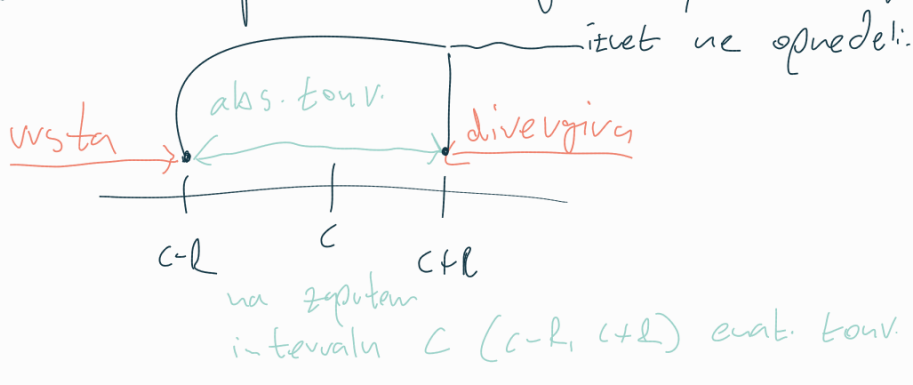 izrek ne opredeli:
abs. konv.
vrsta
divergira
C-R
C
C+R
na zaprtem
intervalu ⊂ (C-R, C+R) enak. konv.